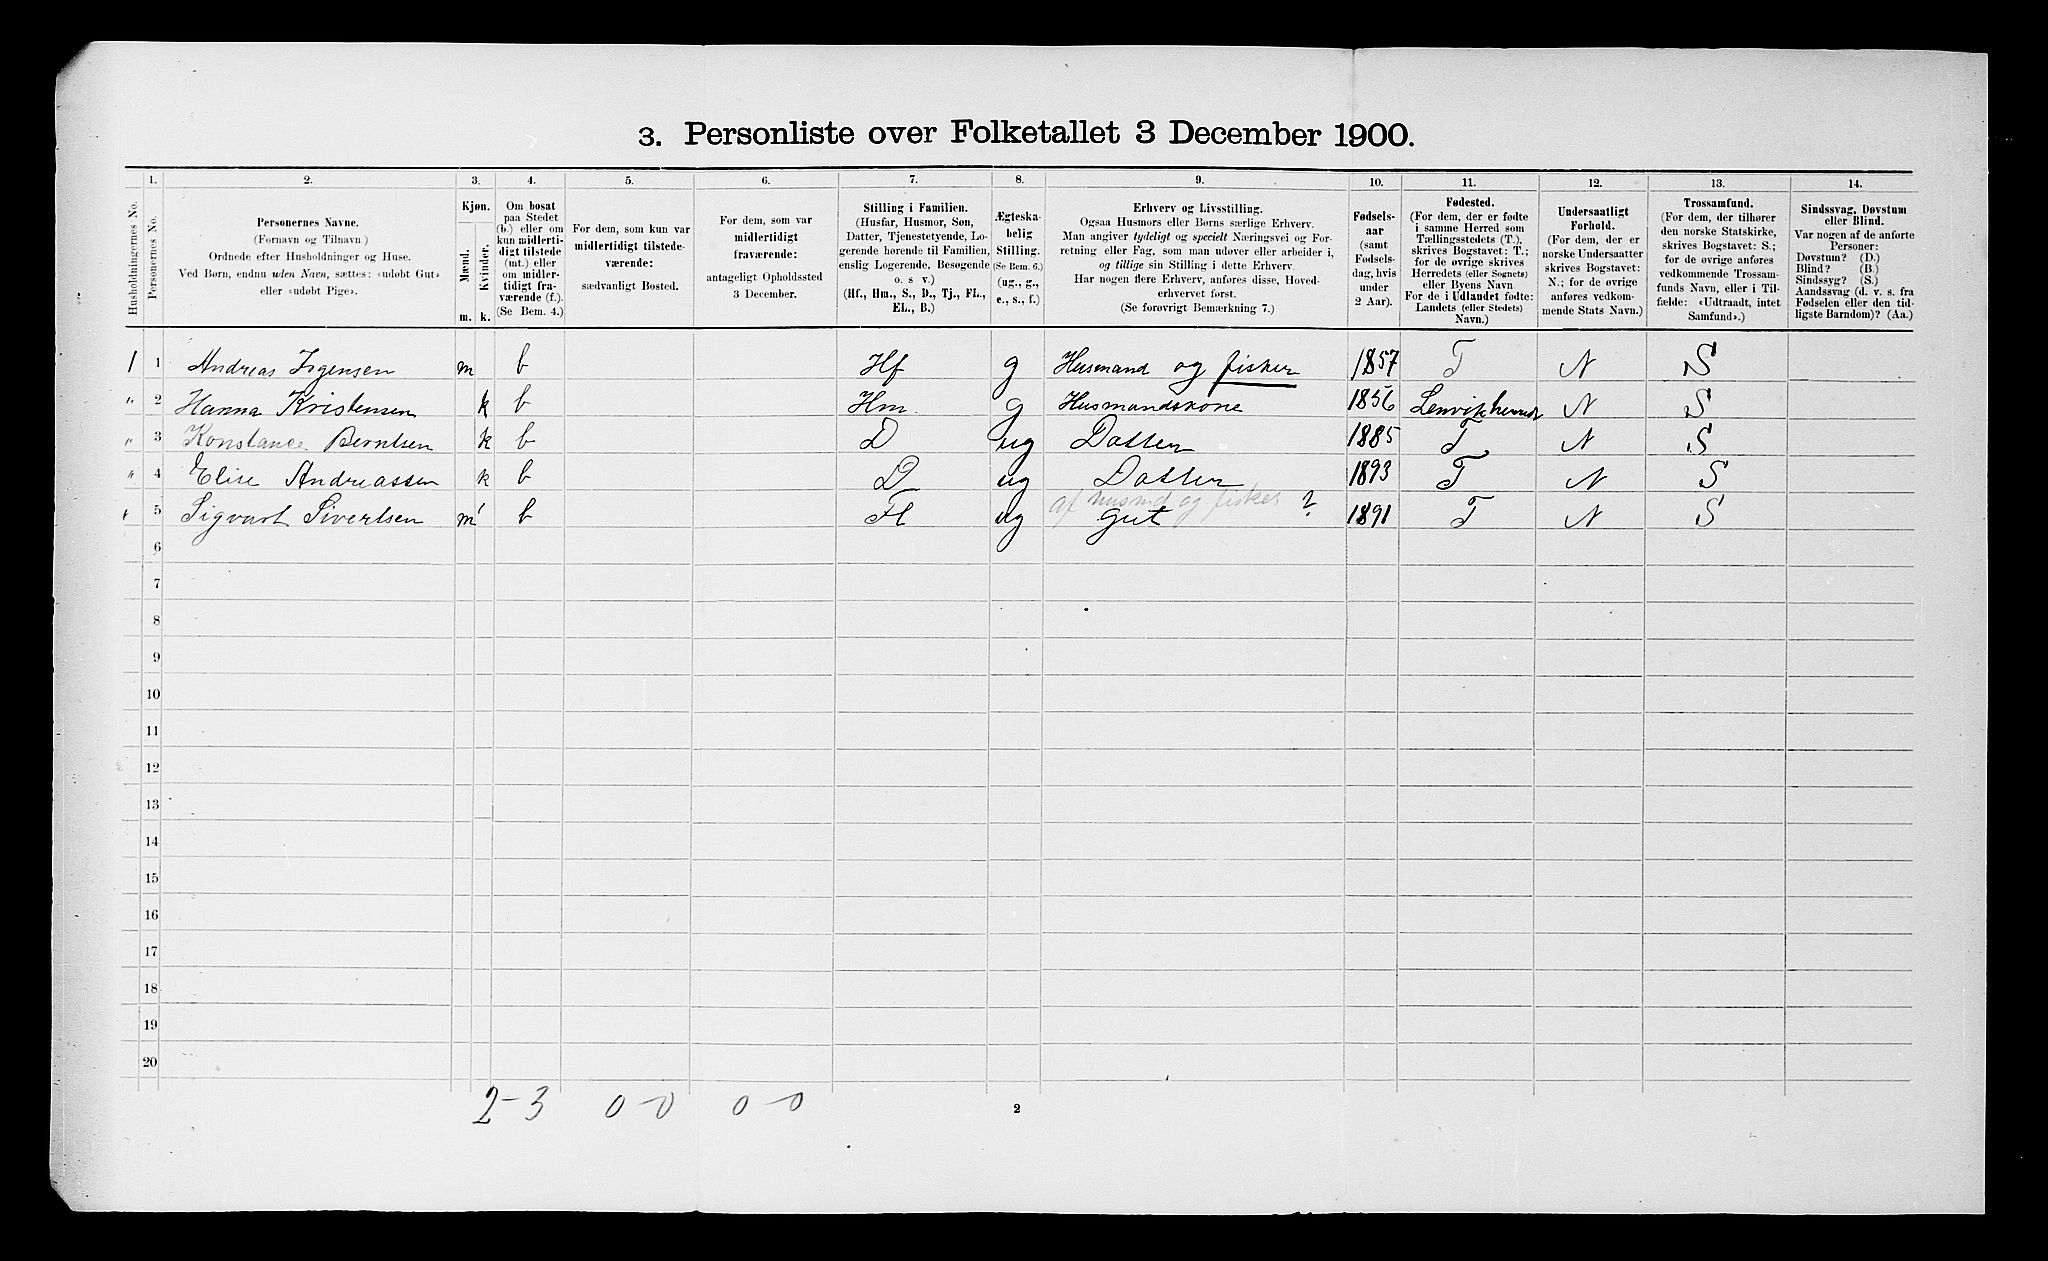 3. Personliste over Folketallet 3 December 1900.
1. 2. 3. 4. 5. 6. 7. 8. 9. 10. 11. 12. 13. 14.
Husholdningernes No.
Personernes No.
Personernes Navne.
(Fornavn og Tilnavn.)
Ordnede efter Husholdninger og Huse.
Ved Børn, endnu uden Navn, sættes: «udøbt Gut»
eller «udøbt Pige».
Kjøn.
Mænd.
Kvinder.
m. k.
Om bosat
paa Stedet
(b.) eller om
kun midlerti-
digt tilstede
(mt.) eller
om midler-
tidigt fra-
værende (f.).
(Se Bem. 4.)
For dem, som kun var
midlertidigt tilstede-
værende:
sædvanligt Bosted.
For dem, som var
midlertidigt
fraværende:
antageligt Opholdssted
3 December.
Stilling i Familien.
(Husfar, Husmor, Søn,
Datter, Tjenestetyende, Lo-
gerende hørende til Familien,
enslig Logerende, Besøgende
o. s v.)
(Hf., Hm., S., D., Tj., FL.,
EL., B.)
Ægteska-
belig
Stilling.
(Se Bem. 6.)
(ug., g.,
e., s., f.)
Erhverv og Livsstilling.
Ogsaa Husmors eller Børns særlige Erhverv.
Man angiver tydeligt og specielt Næringsvei og For-
retning eller Fag, som man udøver eller arbeider i,
og tillige sin Stilling i dette Erhverv.
Har nogen flere Erhverv, anføres disse, Hoved-
erhvervet først.
(Se forøvrigt Bemærkning 7.)
Fødsels-
aar
(samt
Fødsels-
dag, hvis
under
2 Aar).
Fødested.
(For dem, der er fødte
i samme Herred som
Tællingsstedets (T.),
skrives Bogstavet: T.;
for de øvrige skrives
Herredets (eller Sognets)
eller Byens Navn
For de i Udlandet fødte:
Landets (eller Stedets)
Navn.)
Undersaatligt
Forhold.
(For dem, der er
norske Undersaatter
skrives Bogstavet:
N.; for de øvrige
anføres vedkom-
mende Stats Navn.)
Trossamfund.
(For dem, der tilhører
den norske Statskirke,
skrives Bogstavet: S.;
for de øvrige anføres
vedkommende Trossam-
funds Navn, eller i Til-
fælde: «Udtraadt, intet
Samfund».)
Sindssvag, Døvstum
eller Blind.
Var nogen af de anførte
Personer:
Døvstum? (D.)
Blind? (B.)
Sindssyg? (S.)
Aandssvag (d. v. s. fra
Fødselen eller den tid-
ligste Barndom)? (Aa.)
1 1 Andreas Irgensen m b Hf g Husmand og fisker 1857 T N S
" 2 Hanna Kristensen k b Hm. g Husmandskone 1856 Lenvik herred N S
" 3 Konstance Berntsen k b D ug Datter 1885 T N S
" 4 Elise Andreassen k b D ug Datter 1893 T N S
af husmd og fisker ?
" 5 Sigvart Sivertsen m b Fl ug gut 1891 T N S
6
7
8
9
10
11
12
13
14
15
16
17
18
19
20
2-3 0-0 0-0
2